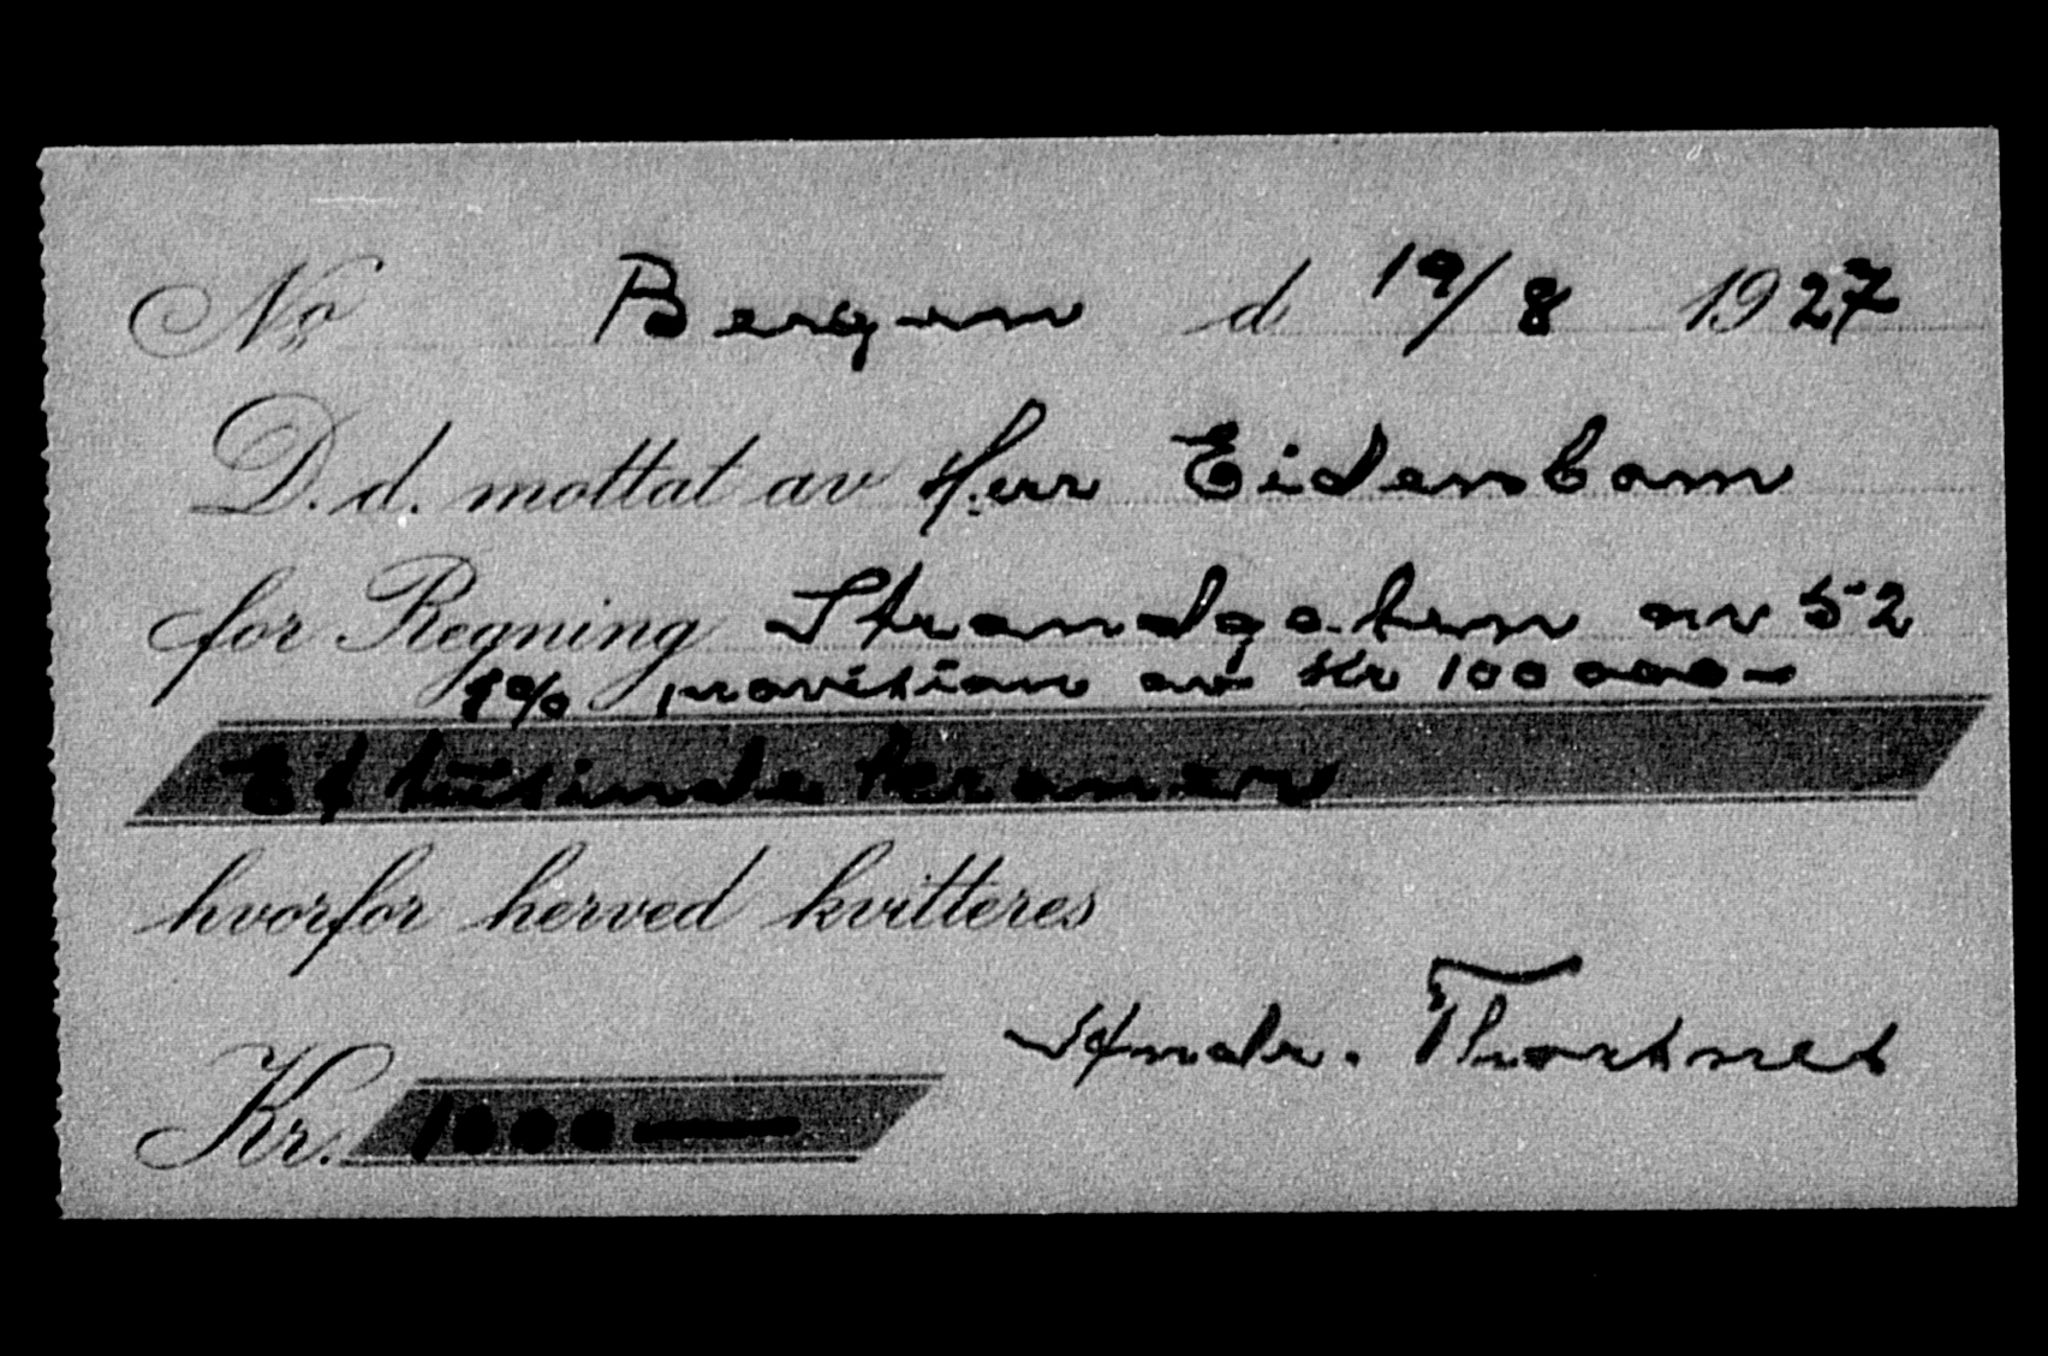 No Bergen d 19/8 1927
D. d. mottat av Herr Eidenbom
for Regning Strandgaten nr 52
1% provision av Kr 100 000 –
Et tusinde kroner
hvorfor herved kvitteres
Andr.
Kr. 1000 —